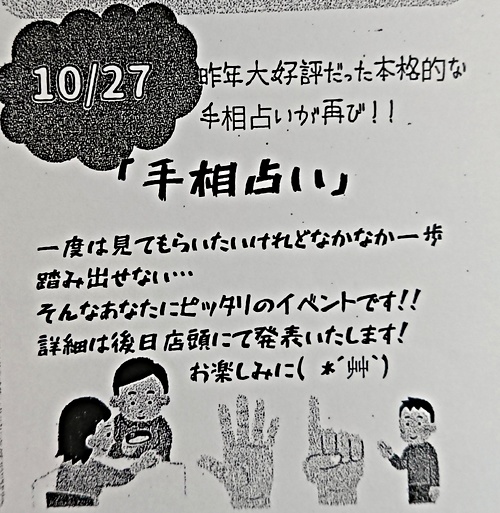 10/27
昨年大好評だった本格的な
手相占いが再び!!
「手相占い」
一度は見てもらいたいけれどなかなか一歩
踏み出せない…
そんなあなたにピッタリのイベントです!!
詳細は後日店頭にて発表いたします!
お楽しみに( *´艸`)